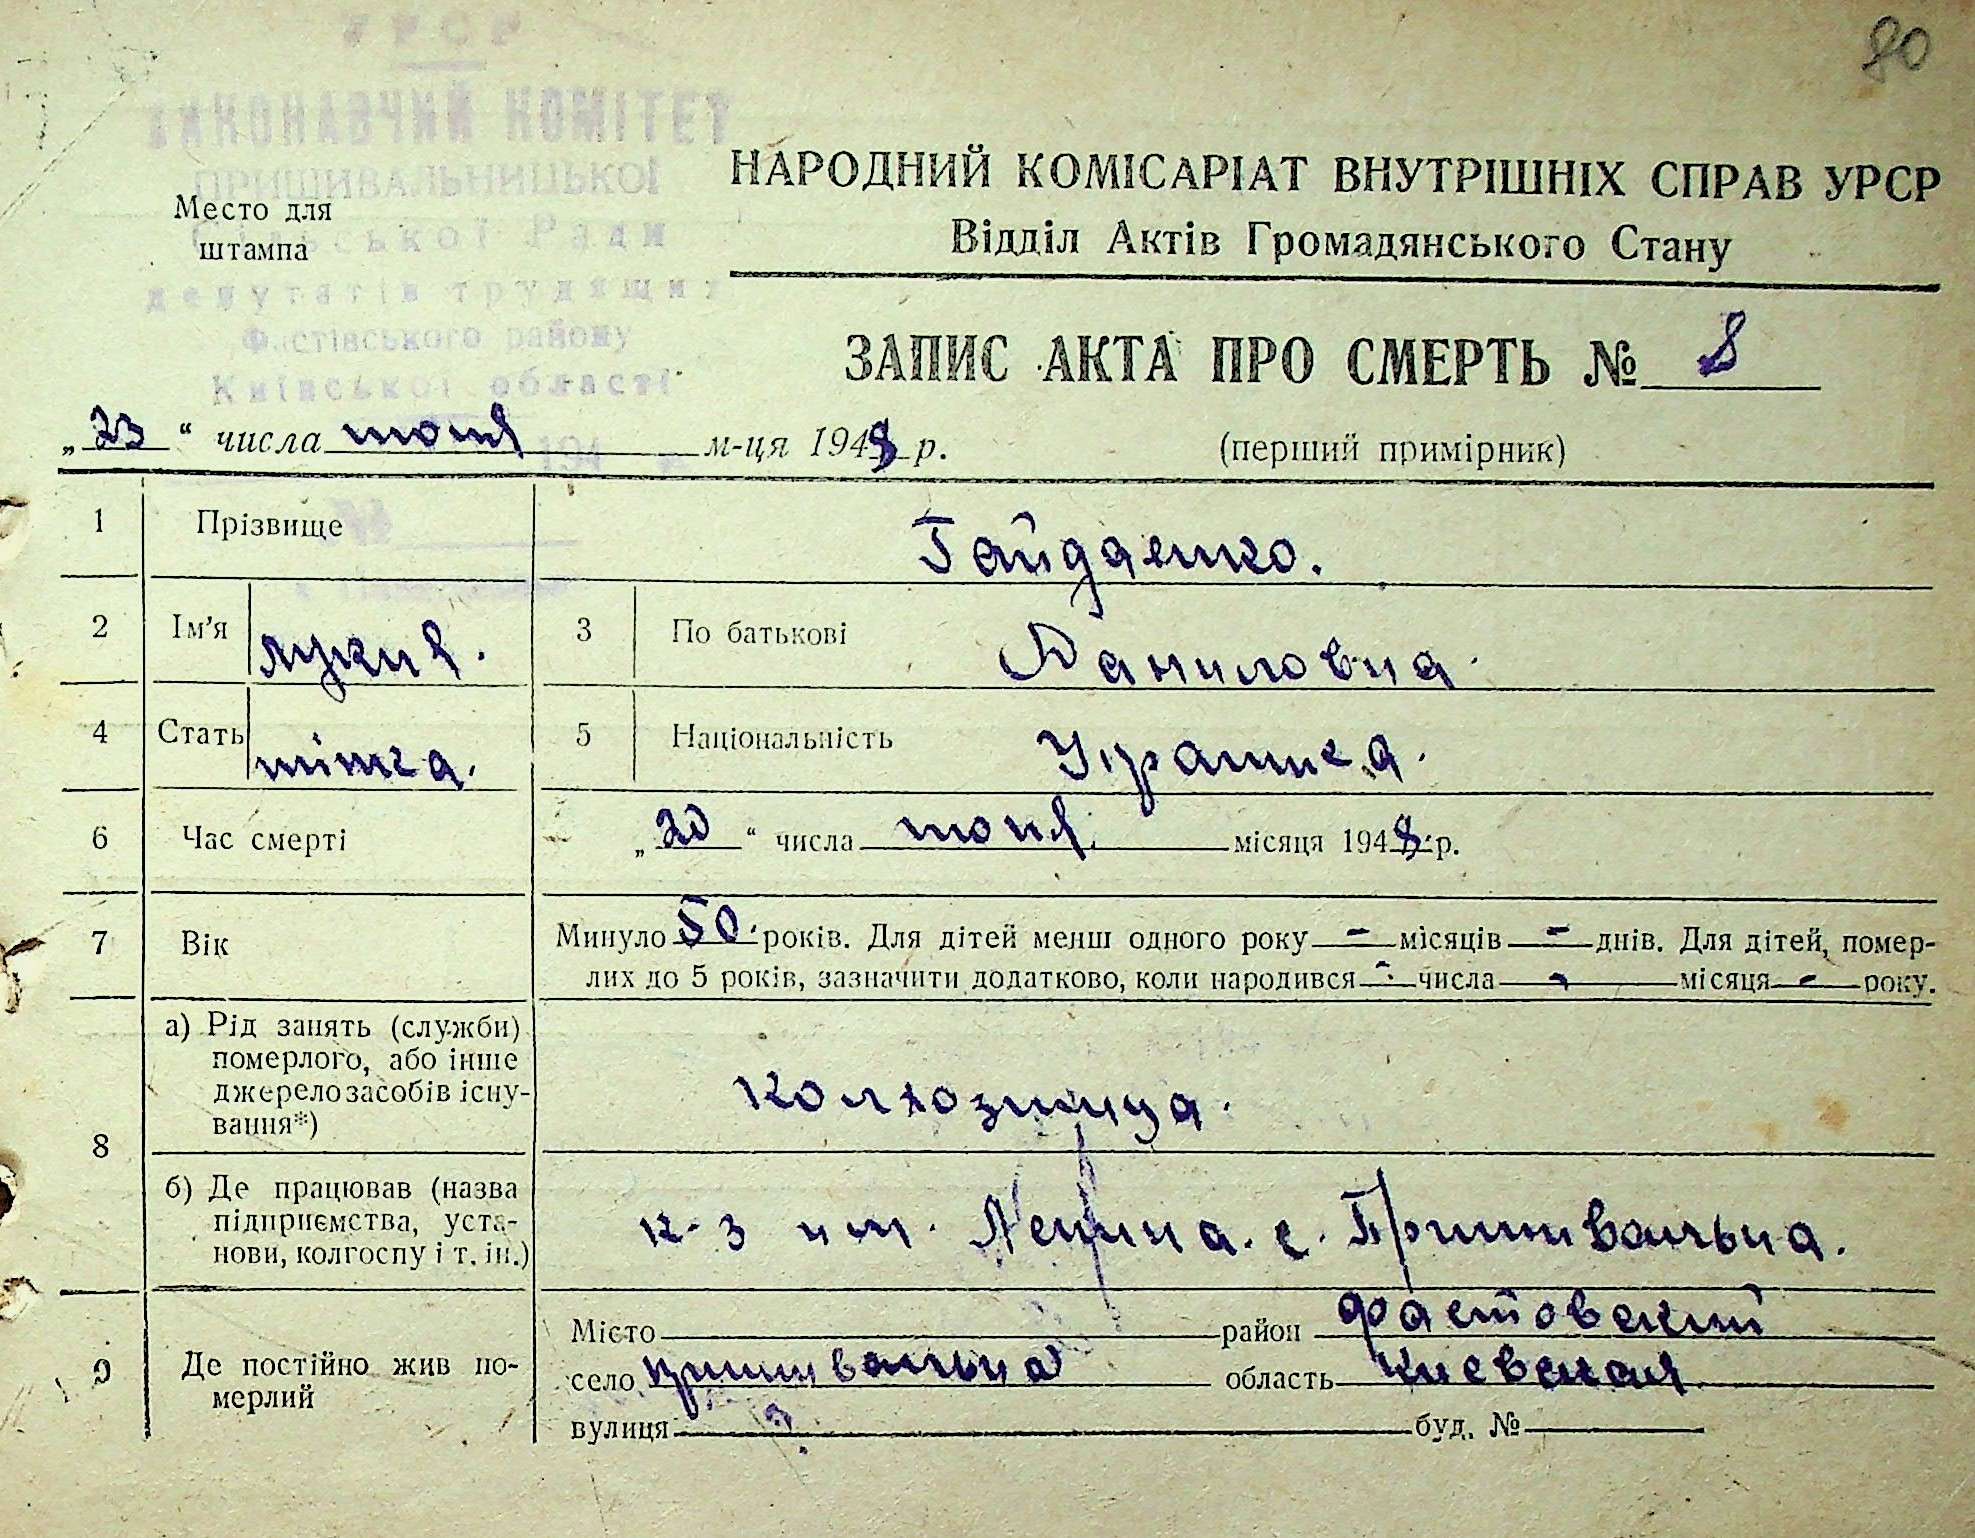 80
УРСР
ВИКОНАВЧИЙ КОМІТЕТ
ПРИШИВАЛЬНИЦЬКОЇ
Сільської Ради
депутатів трудящих
Фастівського району
Київської області
194
№
Место для
штампа
НАРОДНИЙ КОМІСАРІАТ ВНУТРІШНІХ СПРАВ УРСР
Відділ Актів Громадянського Стану
ЗАПИС АКТА ПРО СМЕРТЬ № 8
„23“ числа июня м-ця 1948 р.
(перший примірник)
1 Прізвище Гайдаенко.
2 Ім'я Лукия. 3 По батькові Даниловна.
4 Стать жінка. 5 Національність Украинка.
6 Час смерті „20“ числа июня місяця 1948 р.
7 Вік Минуло 50 років. Для дітей менш одного року - місяців - днів. Для дітей, помер-
лих до 5 років, зазначити додатково, коли народився - числа - місяця - року.
8 а) Рід занять (служби)
померлого, або інше
джерело засобів існу-
вання*)
колхозница.
б) Де працював (назва
підприємства, уста-
нови, колгоспу і т. ін.)
к-з им. Ленина. с. Пришивальна.
9 Де постійно жив по-
мерлий
Місто район Фастовский
село Пришивальна область Киевская
вулиця буд. №